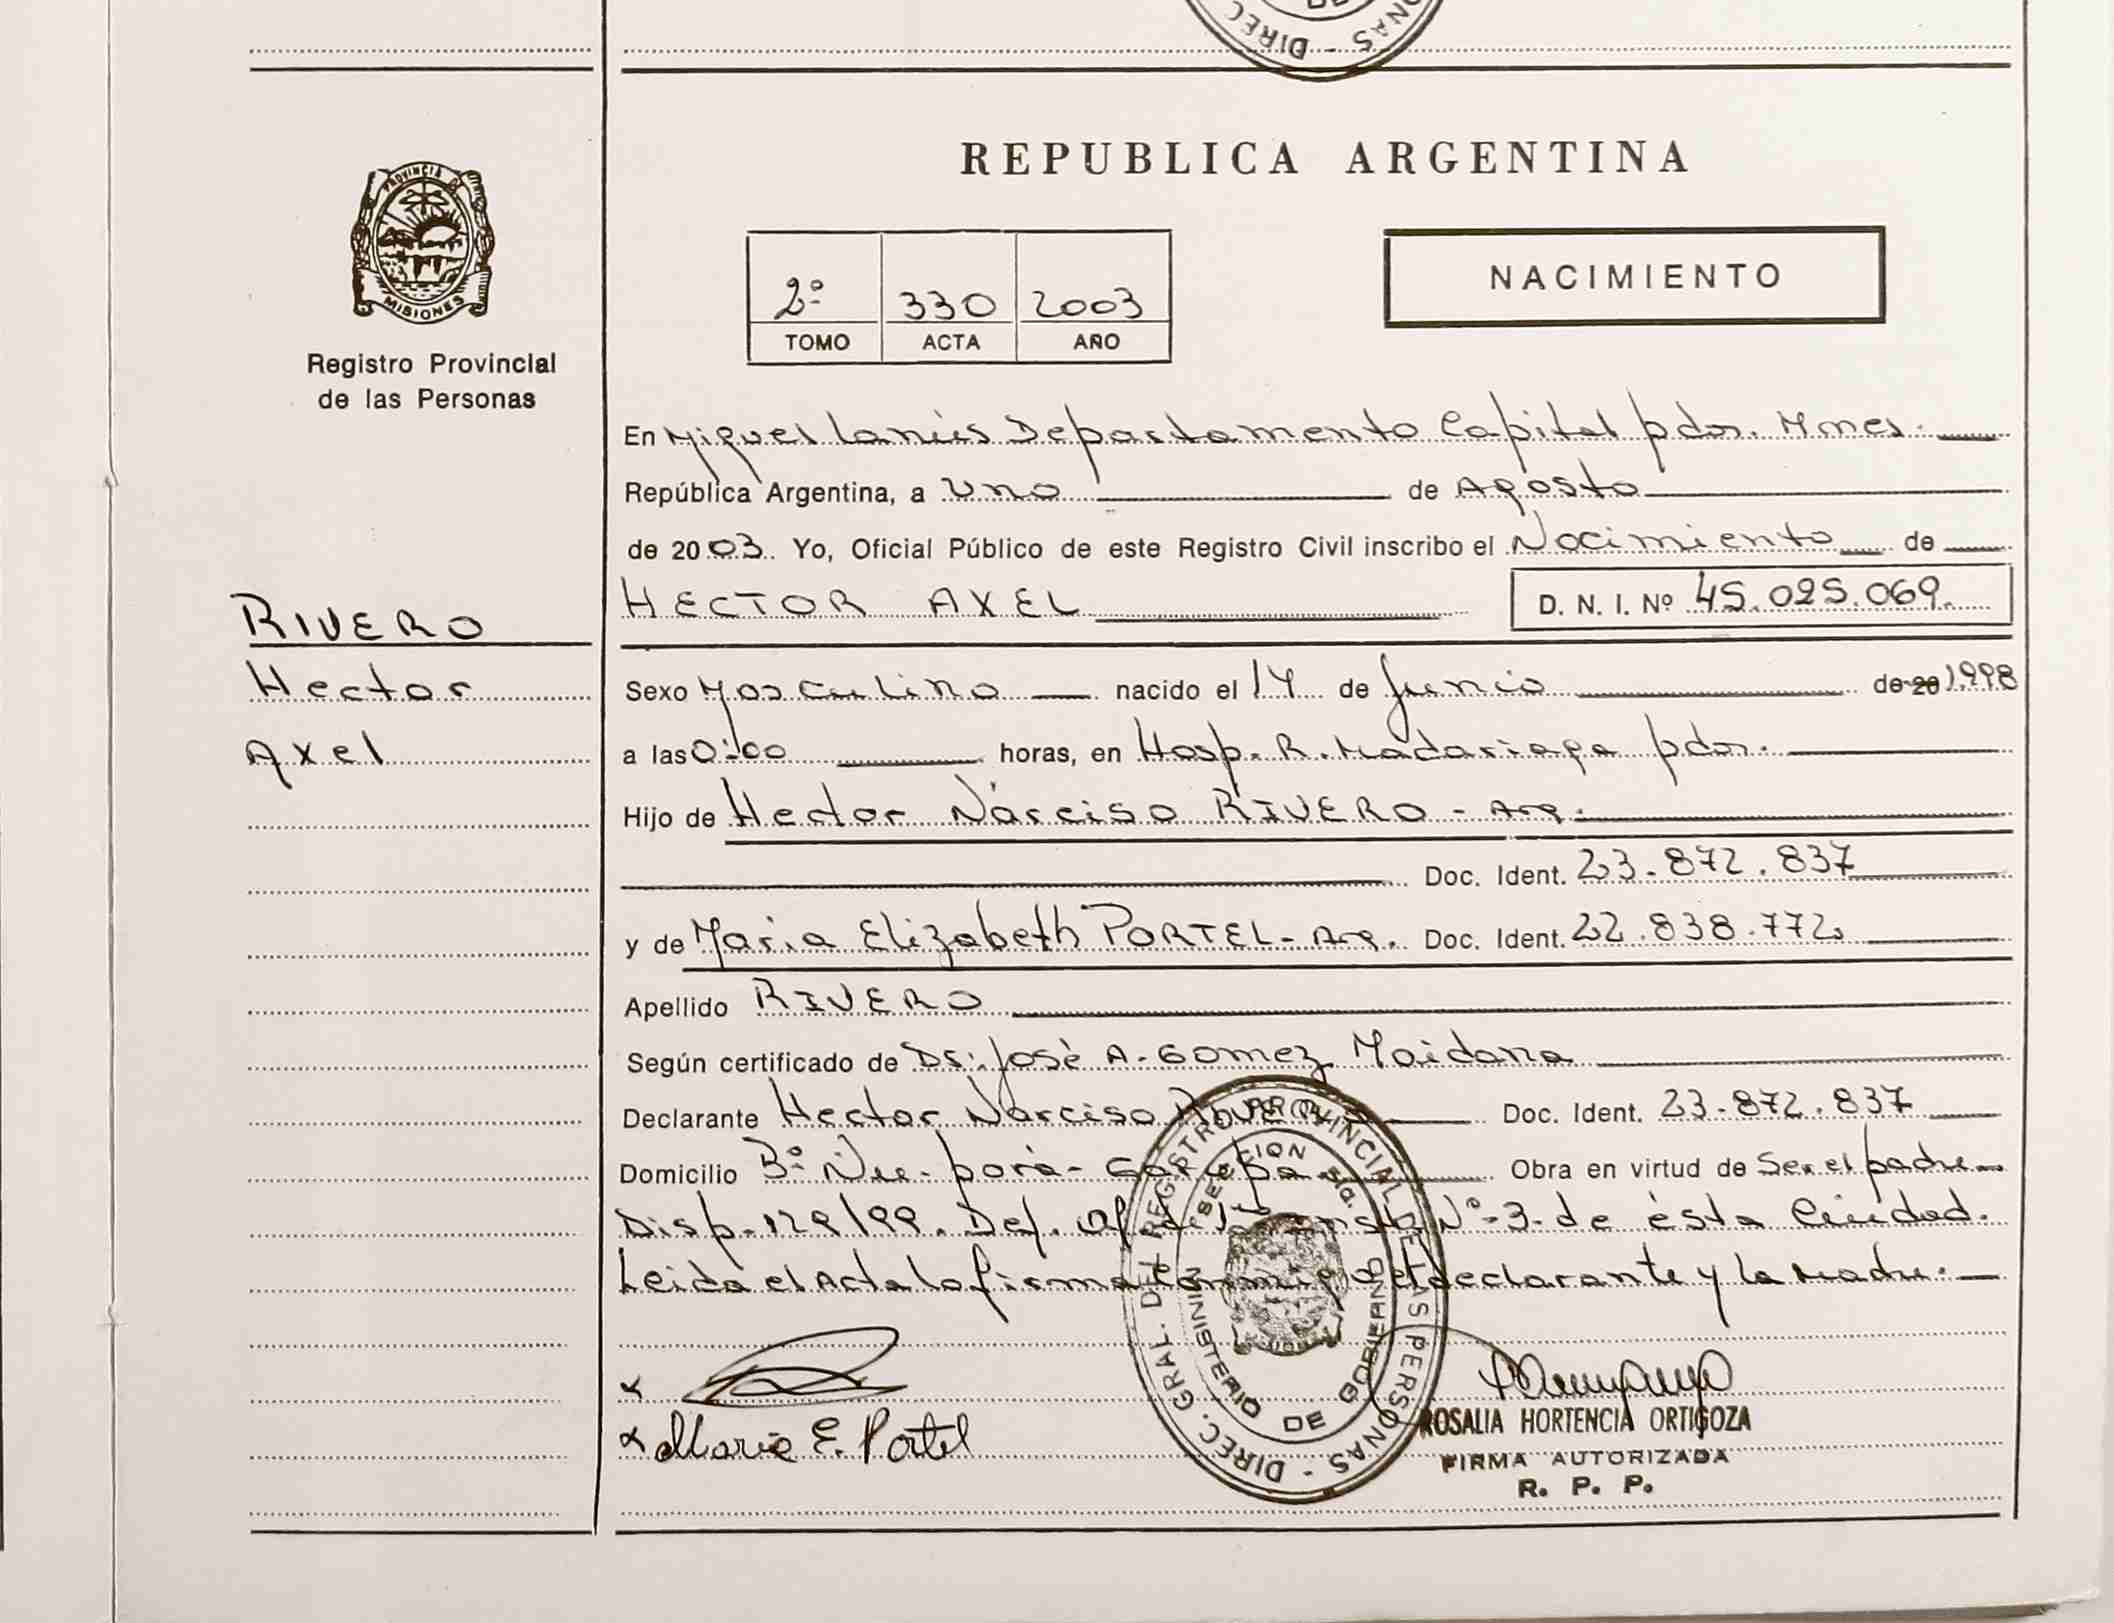 DIREC
NAS
REPUBLICA ARGENTINA
PROVINCIA DE
MISIONES
Registro Provincial
de las Personas
2º 330 2003
TOMO ACTA AÑO
NACIMIENTO
En Miguel Lanús Departamento Capital pdas. Mnes.
República Argentina, a uno de Agosto
de 2003. Yo, Oficial Público de este Registro Civil inscribo el Nacimiento de
HECTOR AXEL D. N. I. Nº 45.025.069.
RIVERO
Hector
Axel
Sexo Masculino nacido el 14 de Junio de 20 1.998
a las 0:00 horas, en Hosp. R. Madariaga pdas.
Hijo de Hector Narciso RIVERO - Arg.
Doc. Ident. 23.872.837
y de Maria Elizabeth PORTEL - Arg. Doc. Ident. 22.838.772
Apellido RIVERO
Según certificado de Dr. José A. Gomez Maidana
Declarante Hector Narciso RIVERO Doc. Ident. 23.872.837
Domicilio Bº Ñu-porá - Garupá Obra en virtud de Ser el padre
Disp. 129/99. Def. Of. de Nº 3 de ésta Ciudad.
Leida el Acta la firma conmigo el declarante y la madre.
DIREC. GRAL. DEL REGISTRO PROVINCIAL DE LAS PERSONAS
SECCION 5ta.
MINISTERIO DE GOBIERNO
x
x Maria E. Portel
ROSALIA HORTENCIA ORTIGOZA
FIRMA AUTORIZADA
R. P. P.